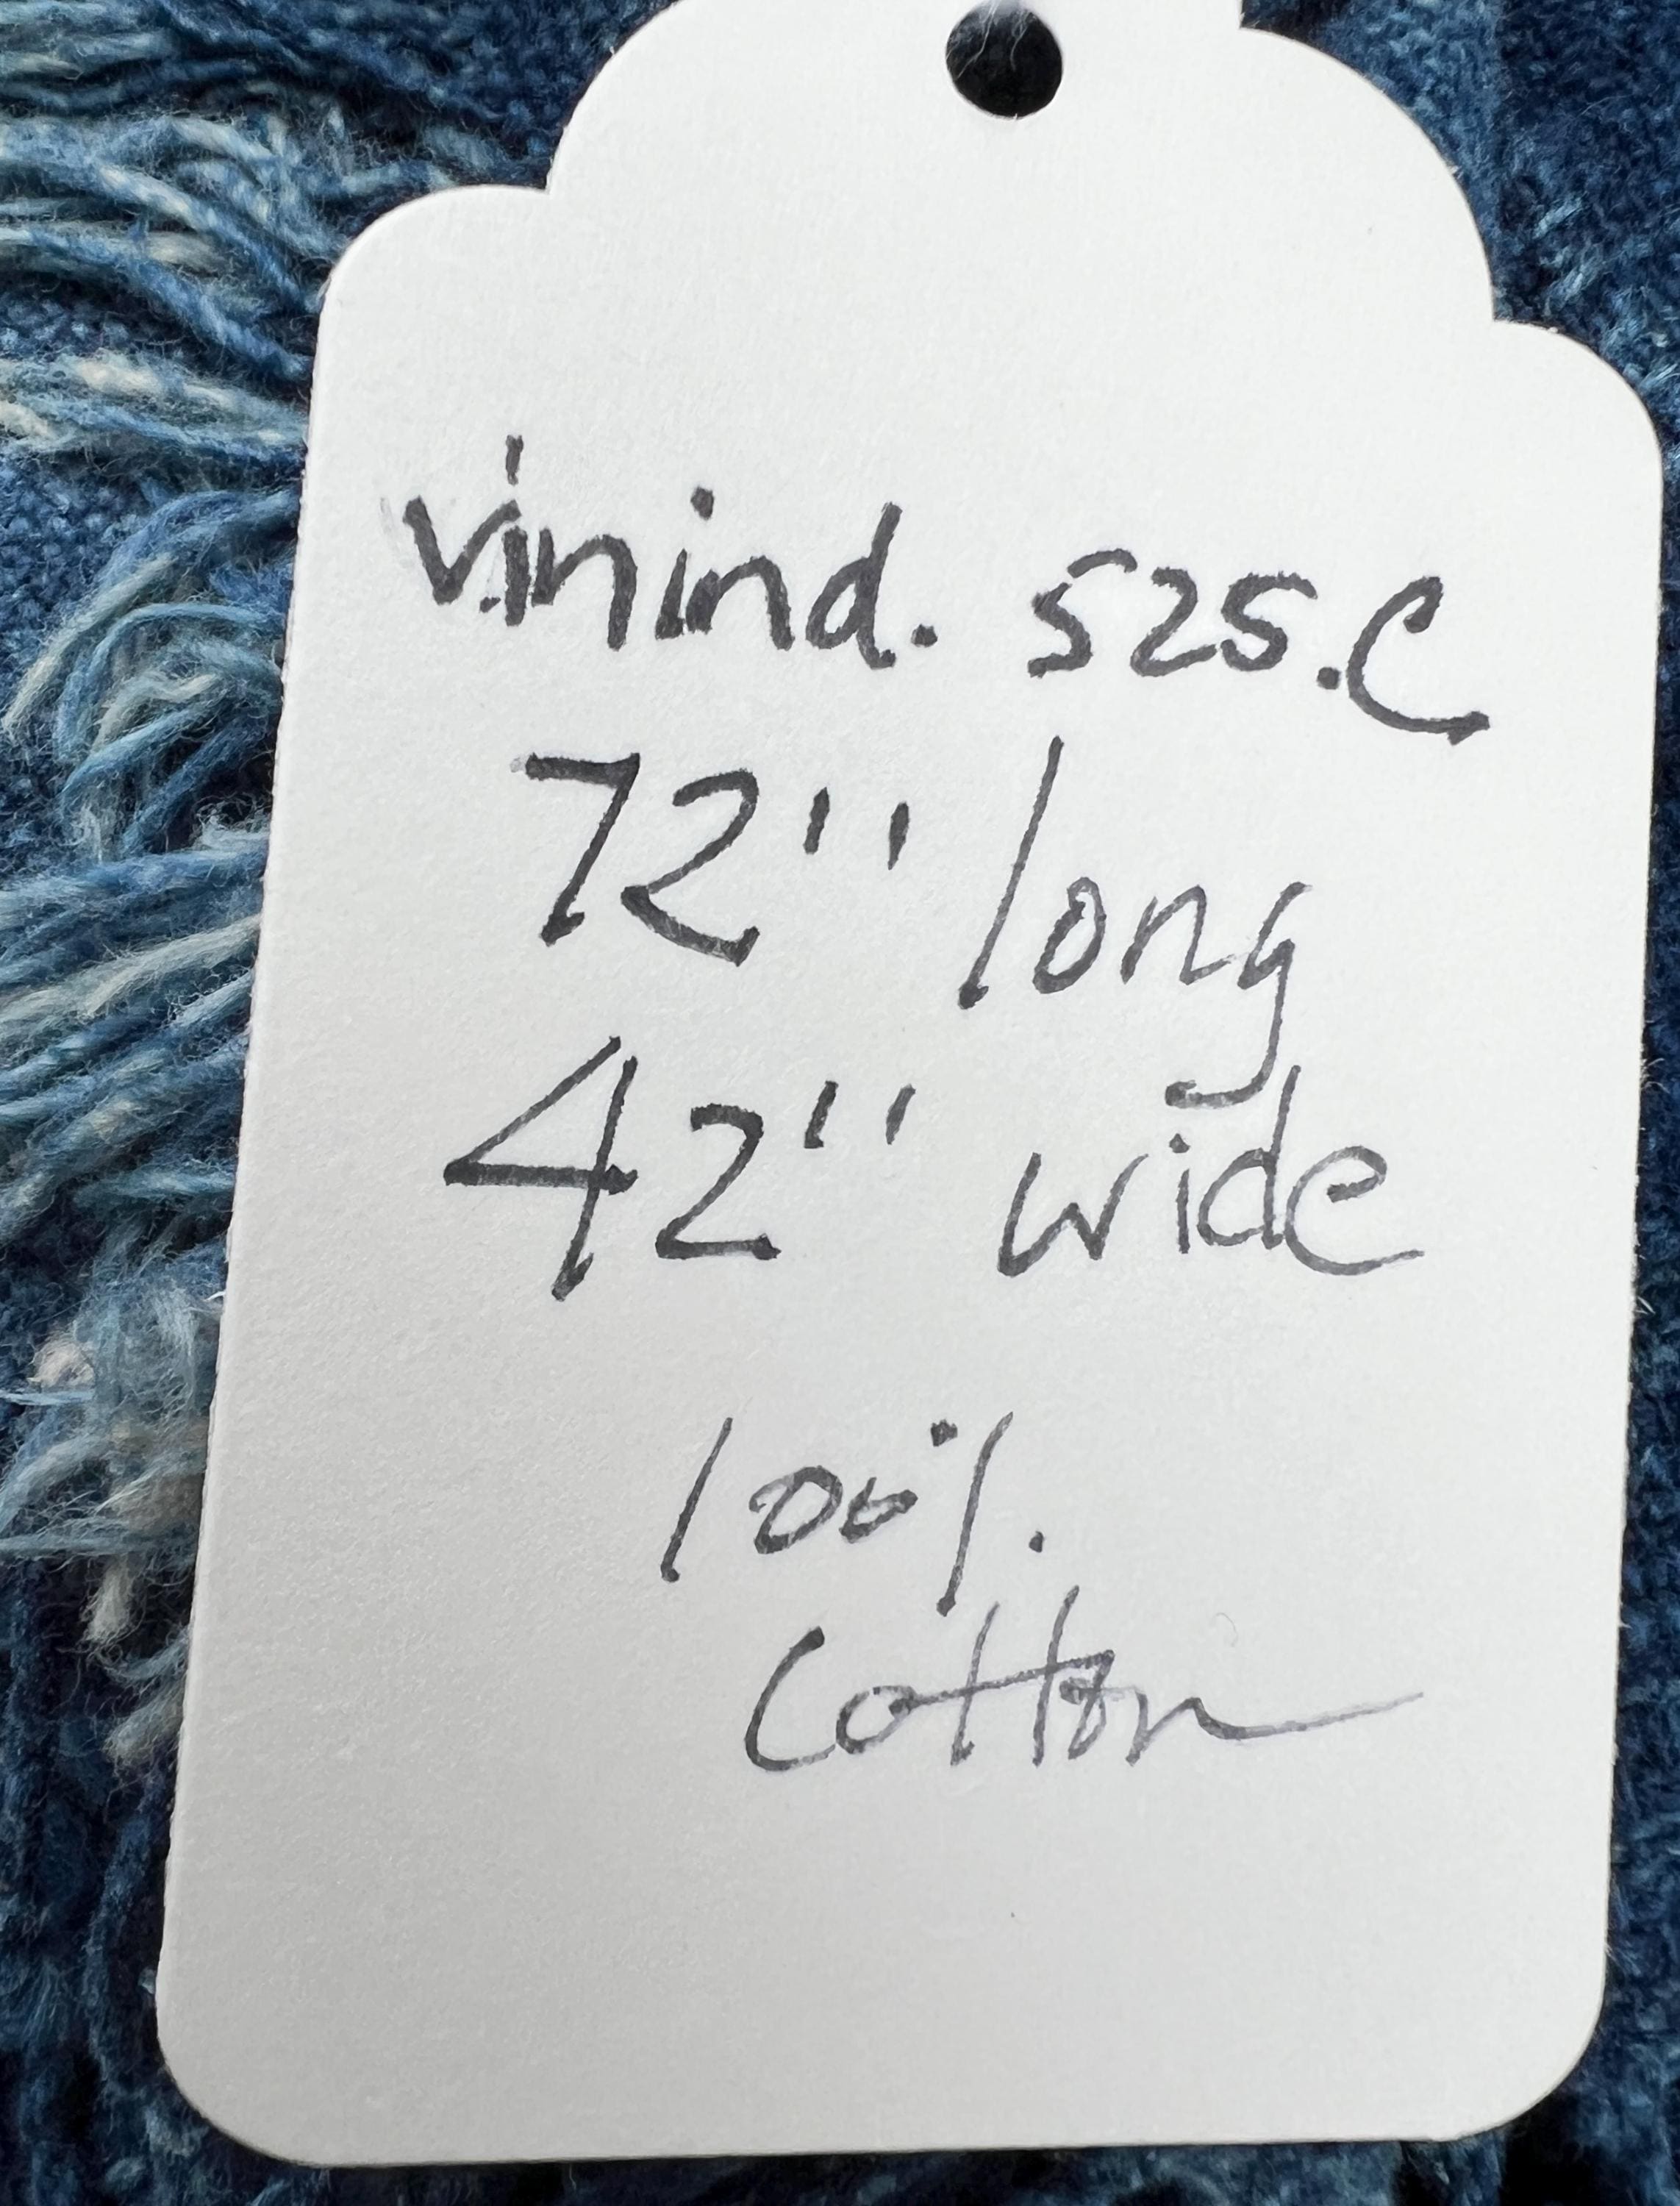 vinind. 525.C
72" long
42" wide
100%
Cotton